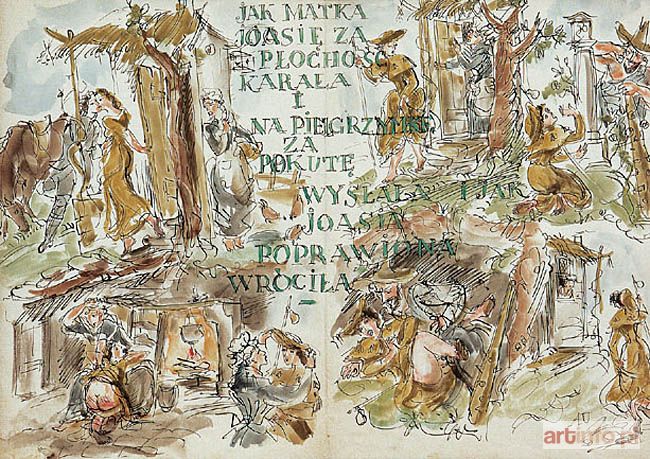 JAK MATKA
JOASIĘ ZA
PŁOCHOŚĆ
KARAŁA
I
NA PIELGRZYMKĘ
ZA
POKUTĘ
WYSŁAŁA I JAK
JOASIA
POPRAWIONA
WRÓCIŁA
artinfo.pl